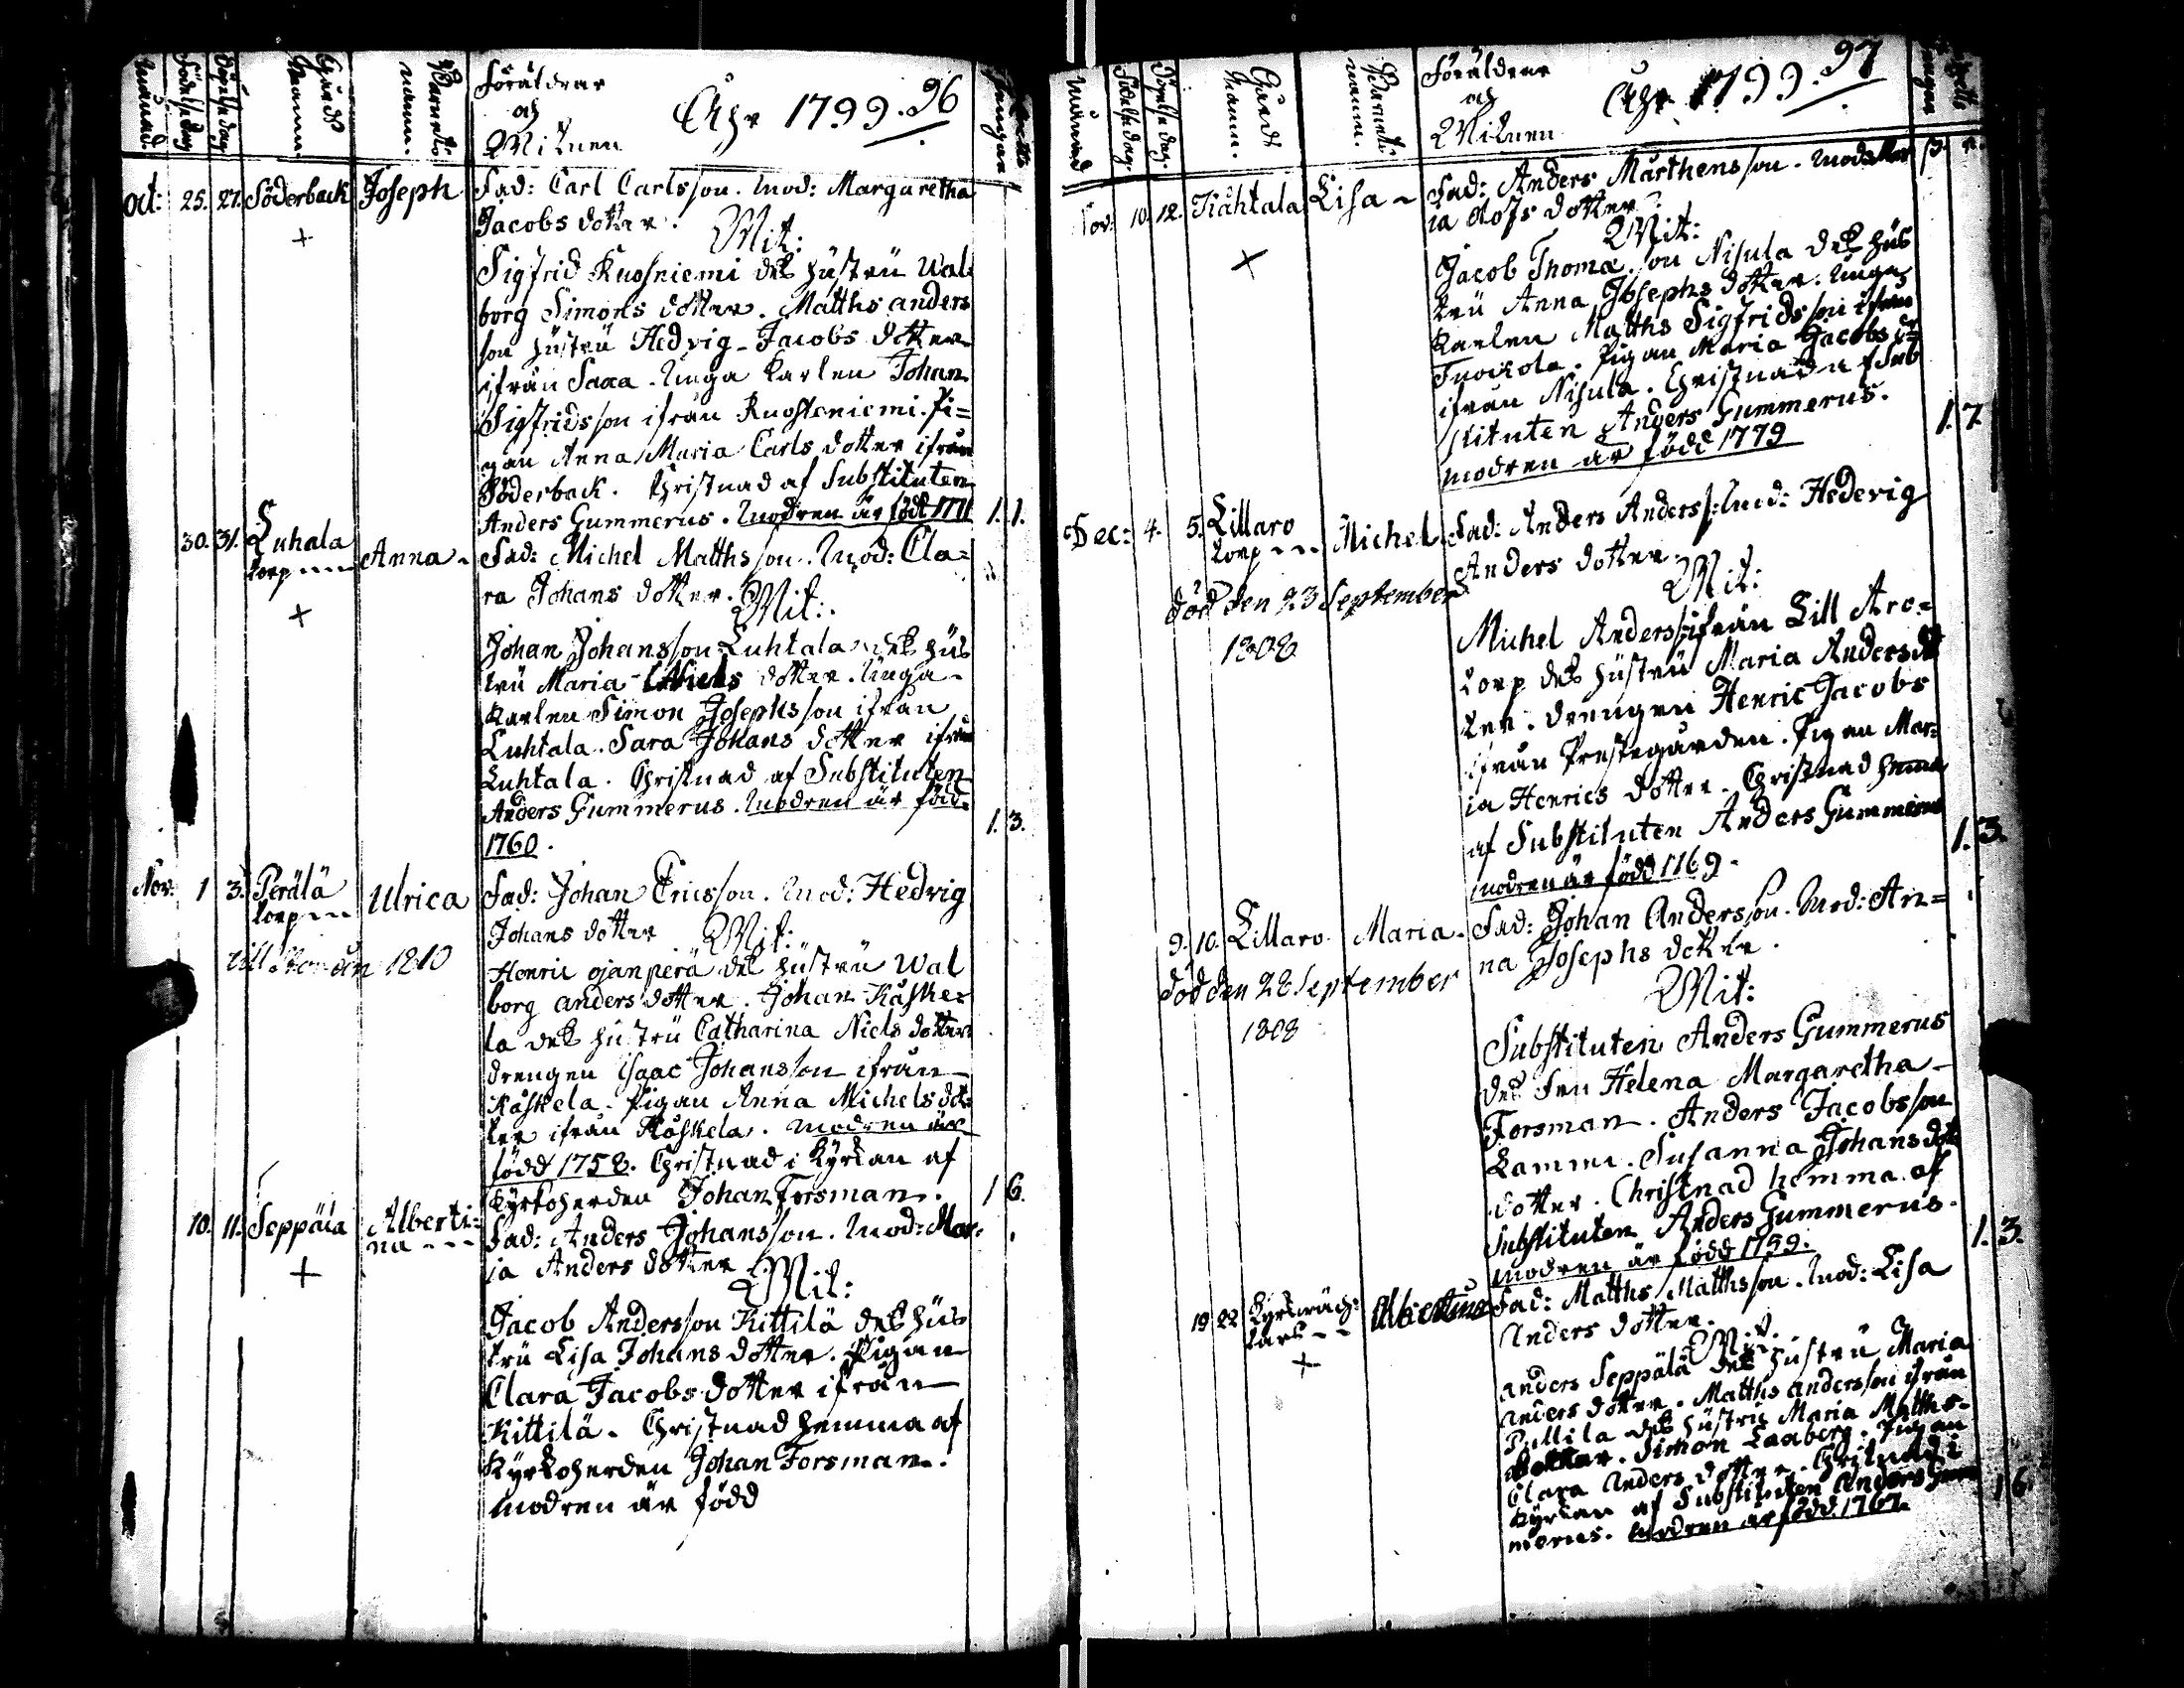 Månad
Födelse dag
Döpelse dag
Gårds Namn.
Barnets namn.
Föräldrar
och
Witnen
Åhr 1799. 96
Oct: 25. 27. Söderback Joseph Fad: Carl Carlsson. Mod: Margaretha
Jacobs dotter.
Wit:
Sigfrid Kuosniemi dess hustru Wal-
borg Simons dotter. Matths anders
son hustru Hedvig Jacobs dotter
ifrån Saxa. Unga Karlen Johan
Sigfridsson ifrån Kuosteniemi. Pi=
gan Anna Maria Carls dotter ifrån
Söderback. Christnad af Substituten
Anders Gummerus. Modren är född 1771 1. 1.
30. 31. Luhala
torp Anna Fad: Michel Matthsson. Mod: Cla=
ra Johans dotter.
Wit:
Johan Johansson Luhtala dess hus
tru Maria Niels dotter. Unga
Karlen Simon Josephsson ifrån
Luhtala. Sara Johans dotter ifrån
Luhtala. Christnad af Substituten
Anders Gummerus. Modren är född
1760. 1. 3.
Nov: 1 3. Perälä
torp Ulrica Fad: Johan Ericsson. Mod: Hedvig
Johans dotter
Wit:
1810
Henric ojanperä dess hustru Wal
borg anders dotter. Johan Kåske=
la dess hustru Catharina Niels dotter
drengen Isaac Johansson ifrån
Kåskela. Pigan Anna Michels dot
ter ifrån Kåskela. Modren är
född 1758. Christnad i Kyrkan af
Kyrkoherden Johan Forsman. 1 6.
10. 11. Seppälä Alberti=
na Fad: Anders Johansson. Mod: Mar=
ia Anders dotter
Wit:
Jacob Andersson Kittilä dess hus
tru Lisa Johans dotter. Pigan
Clara Jacobs dotter ifrån
Kittilä. Christnad hemma af
Kyrkoherden Johan Forsman.
Modren är född
Månad
Födelse dag.
Döpelse dag.
Gårds Namn.
Barnets namn.
Föräldrar
och
Witnen
Åhr 1799. 97
Nov: 10. 12. Kåhtala Lisa Fad: Anders Mårthensson. Mod: Mar
ia Olofs dotter
Wit:
Jacob Thomasson Nisula dess hus
tru Anna Josephs dotter. Unga
Karlen Matths Sigfridsson ifrån
Pigan Maria Jacobs dr
ifrån Nisula. Christnad af Sub
stituten Anders Gummerus. 1. 7.
modren är född 1779
Dec: 4. 5. Lillaro
torp Michel Fad: Anders Anderss: Mod: Hedevig
Anders dotter
död den 23 September
1808
Wit:
Michel Anderss: ifrån Lill Aro=
torp dess hustru Maria Anders dot
ter. drengen Henric Jacobs
ifrån Prestegården. Pigan Mar=
ia Henrics dotter. Christnad hemma
af Substituten Anders Gummerus 1. 3.
modren är född 1769.
9. 10. Lillaro Maria Fad: Johan Andersson. Mod: An=
na Josephs dotter.
död den 28 September
1808
Wit:
Substituten Anders Gummerus
dess Fru Helena Margaretha
Forsman. Anders Jacobsson
Lammi. Susanna Johans dot
dotter. Christnad hemma af
Substituten Anders Gummerus. 1. 3.
modren är född 1759.
19 22 Albertina Fad: Matths Matthsson. Mod: Lisa
Anders dotter.
Wit.
anders Seppälä dess hustru Maria
anders dotter. Matths andersson ifrån
Pullila dess hustru Maria Matths
dotter. Simon Laaberg. Pigan
Clara Anders dotter. Christnad i
Kyrkan af Substituten Anders Gum 1 6.
merus. Modren är född 1767.